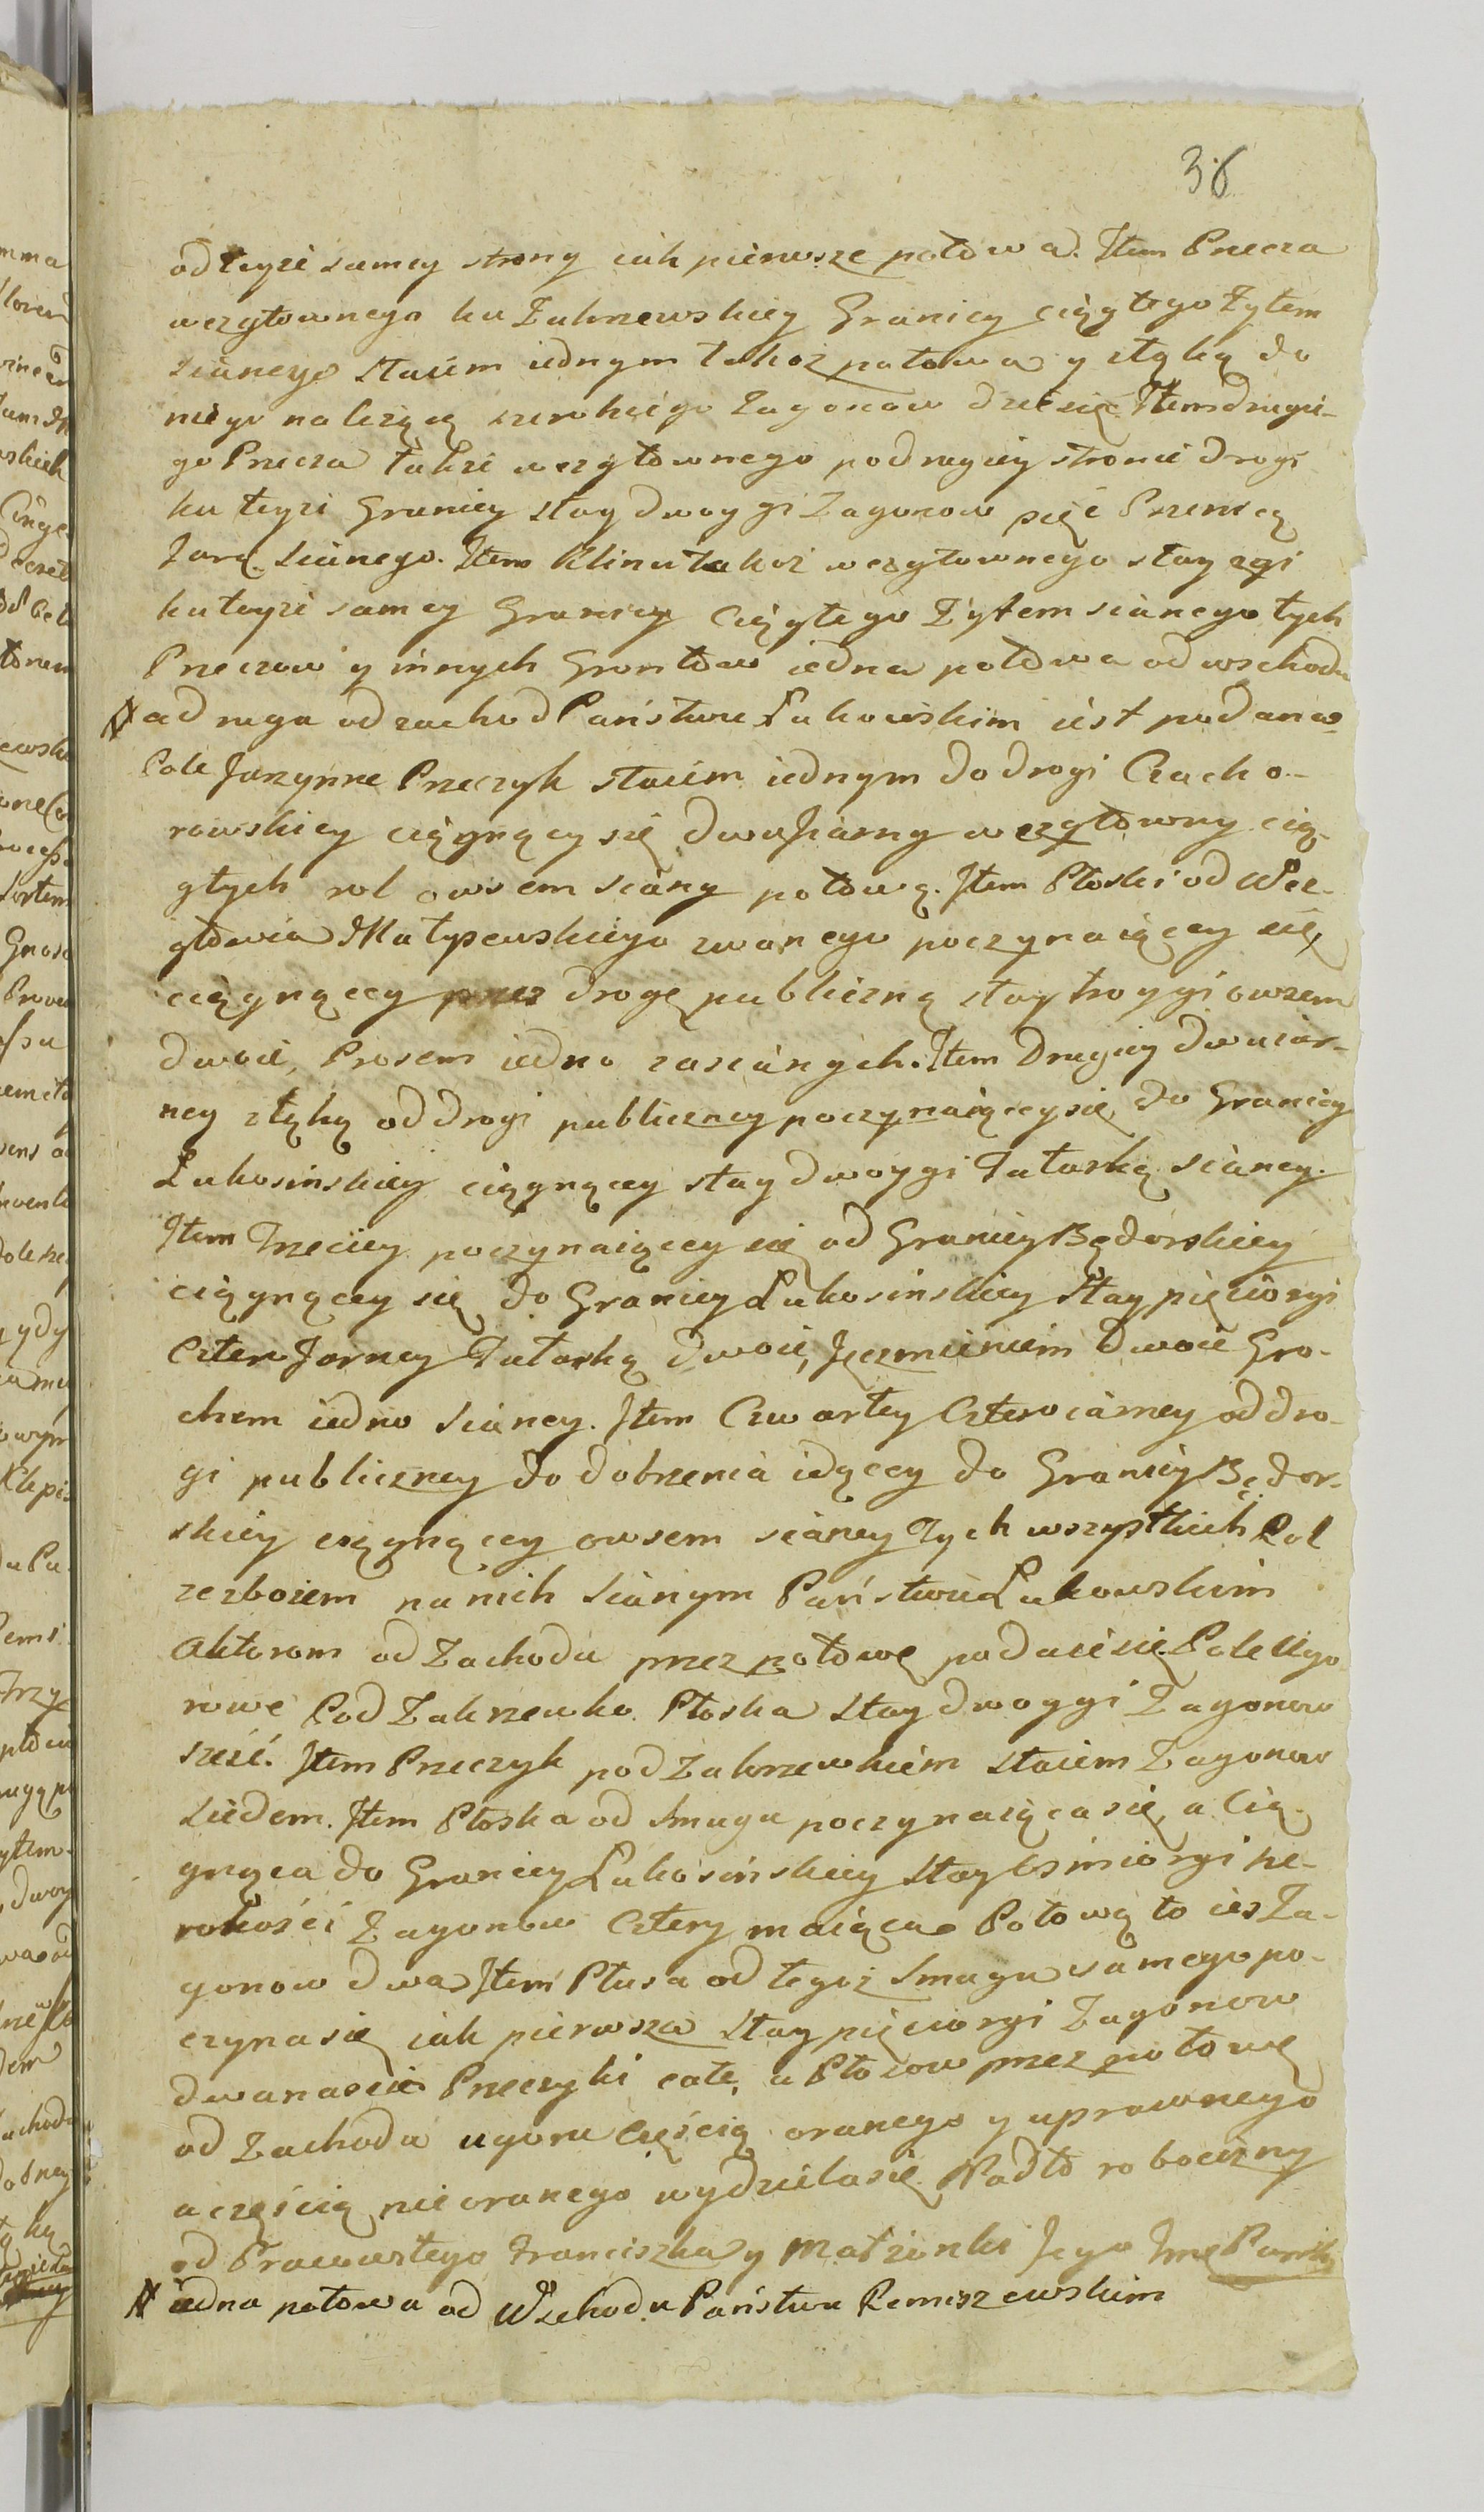 36
od teyże samey strony iak pierwsze połowa. Item Przecza
wezgłownego ku Zakrzewskiey Granicy ciągłego Żytem
sianego staiem iednym takoż połowa y złąką do
niego nalezącą szerokiego Zagonow dziesięć Item drugie-
go Przecza także wezgłownego po drugiey stronie drogi
ku teyże Granicy stay dwoygi Zagonow pięć Przenicą
Jarą sianego. Item Klinu takoż wezgłownego stay
ku teyże samey Granicy Ciągłego Żytem sianego tych
Przeczow y innych Grontow iedna połowa od wschodu
# a druga od zachod Państwu Łukowskim iest podana w
Pole Jarzynne Przeczyk staiem iednym do drogi Czacho-
rowskiey ciągnący się dwuskarny wezgłowny cią-
głych rol owsem siany połową. Item Płoski od Wez-
głowia Małyszewskiego zwanego poczynaiącey się,
ciągnącey przez drogę publiczną stay troygi owsem
dwoie, Prosem iedno zasianych. Item Drugiey dwuciar-
ney złąką od drogi publiczney poczynaiącey się do Granicy
Łukosińskiey ciągnącey stay dwoygi Tatarką sianey.
Item Trzeciey poczynaiącey się od Granicy Bądorskiey
ciągnącey się do Granicy Łukosińskiey stay pięciorgi
Cztero Jarney Tatarką dwoie, Jęczmieniem dwoie Gro-
chem iedno sianey. Item Czwartey Czterociarney od dro-
gi publiczney do dobrzenia idącey do Granicy Bądor-
skiey ciągnącey owsem sianey Tych wszystkich Rol
zezbożem na nich sianym Państwu Łukowskim
Aktorom od Zachodu przez połowę podaie się. Pole Ugo
rowe Pod Zakrzewko. Płoska stay dwoygi Zagonow
sześć. Item Przeczyk pod Zakrzewkiem staiem Zagonow
siedem. Item Płoska od smuga poczynaiąca się, a Cią-
gnąca do Granicy Łukosińskiey stay ośmiorgi sze-
rokości Zagonow Cztery maiąca Połową to iest Za-
gonow dwa Item Płusa od tegoż smugu samego po-
czyna się iak pierwsza stay pięciorgi Zagonow
dwanascie Przeczyki całe, a Płosow przez połowę
od Zachodu ugoru Częścią oranego y uprawnego
a częścią nieoranego wydziela się. Nadto robocizny
od Pracowitego Franciszka y Małżonki Jego
# iedna połowa od Wschodu Państwu Remiszewskim